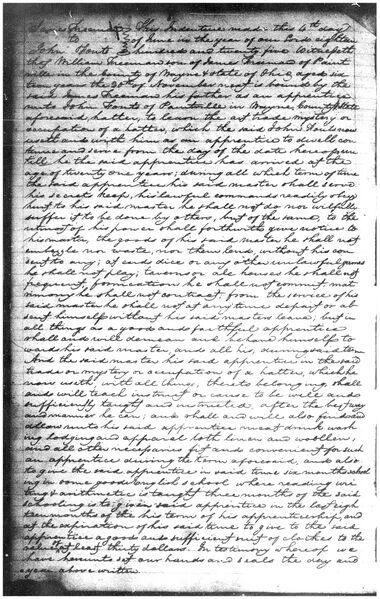 James Freeman } This Indenture made this 4th day
to } of June in the year of our Lord eighteen
John Fonts } hundred and twenty five Witnesseth
that William Freeman son of James Freeman of Paint
ville in the County of Wayne & State of Ohio aged six
teen years the 20th of November next is bound by the
said James Freeman his father as an apprentice
unto John Fonts of Paintville in Wayne County & State
aforesaid, hatter, to learn the art trade mystery or
occupation of a hatter, which the said John Fonts now
useth and with him as an apprentice to dwell con
tinue and serve from the day of the date hereof un
till he the said apprentice has arrived at the
age of twenty one years; during all which term of time
the said apprentice his said master shall serve
his secrets keep, his lawful commands readily obey
hurt to his said master he shall not do nor wilfully
suffer it to be done by others, but of the same, to the
utmost of his power shall forthwith give notice to
his master, the goods of his said master he shall not
embezzle nor waste, nor them lend without his con
sent to any; at card dice or any other unlawful games
he shall not play; taverns or ale houses he shall not
frequent, fornication he shall not commit mat
rimony he shall not contract from the service of his
said master he shall not at any time depart or ab
sent himself without his said masters leave, but in
all things as a good and faithful apprentice
shall and will demean and behave himself to
wards his said master and all his, during said term
And the said master his said apprentice in the said
trade or mystery or occupation of a hatter, which he
now useth, with all things, thereto belonging, shall
and will teach instruct or cause to be well and
sufficiently taught and instructed after the best way
and manner he can; and shall and will also find and
allow unto his said apprentice meat drink wash
ing lodging and apparel both linen and woollen,
and all other necessaries fit and convenient for such
an apprentice during the term aforesaid, and also
to give the said apprentice in said time six months school
ing in some good English school where reading wri
ting & arithmetic is taught three months of the said
schooling to be given said apprentice in the last eigh
teen months of the his term of his apprenticeship, and
at the expiration of his said time to give to the said
apprentice a good and sufficient suit of clothes to the
value of at least thirty dollars. In testimony whereof we
have hereunto set our hands and seals the day and
year above written.